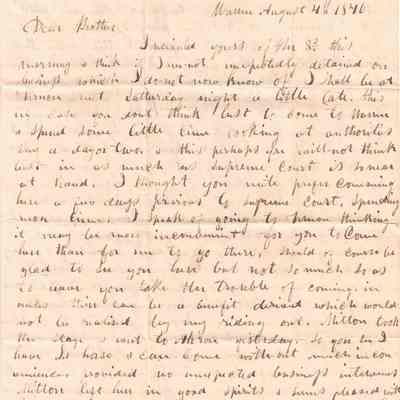 Warren August 4th 1846
Dear Brother
I received yours of the 3d this
morning & think if I am not unexpectedly detained on
business which I do not now know of I shall be at
Vernon next Saturday night a little late. this
in case you dont think best to come to Warren
& spend some little time looking at authorities
say a day or two & this perhaps you will not think
best in as much as Supreme Court is so near
at hand. I thought you might prefer comeing
here a few days previous to Supreme Court, Spending
more time. I speak of going to Vernon thinking
it may be more inconvenient for you to Come
here than for me to go there, should of course be
glad to see you here but not so much so as
to have you take the trouble of coming in
unless there can be a benefit derived which would
not be realised by my riding out. Milton took
the stage & went to Akron yesterday. So you see I
have his horse & can Come without much incon
venience provided no unexpected business intervenes
Milton left here in good spirits & seems pleased with